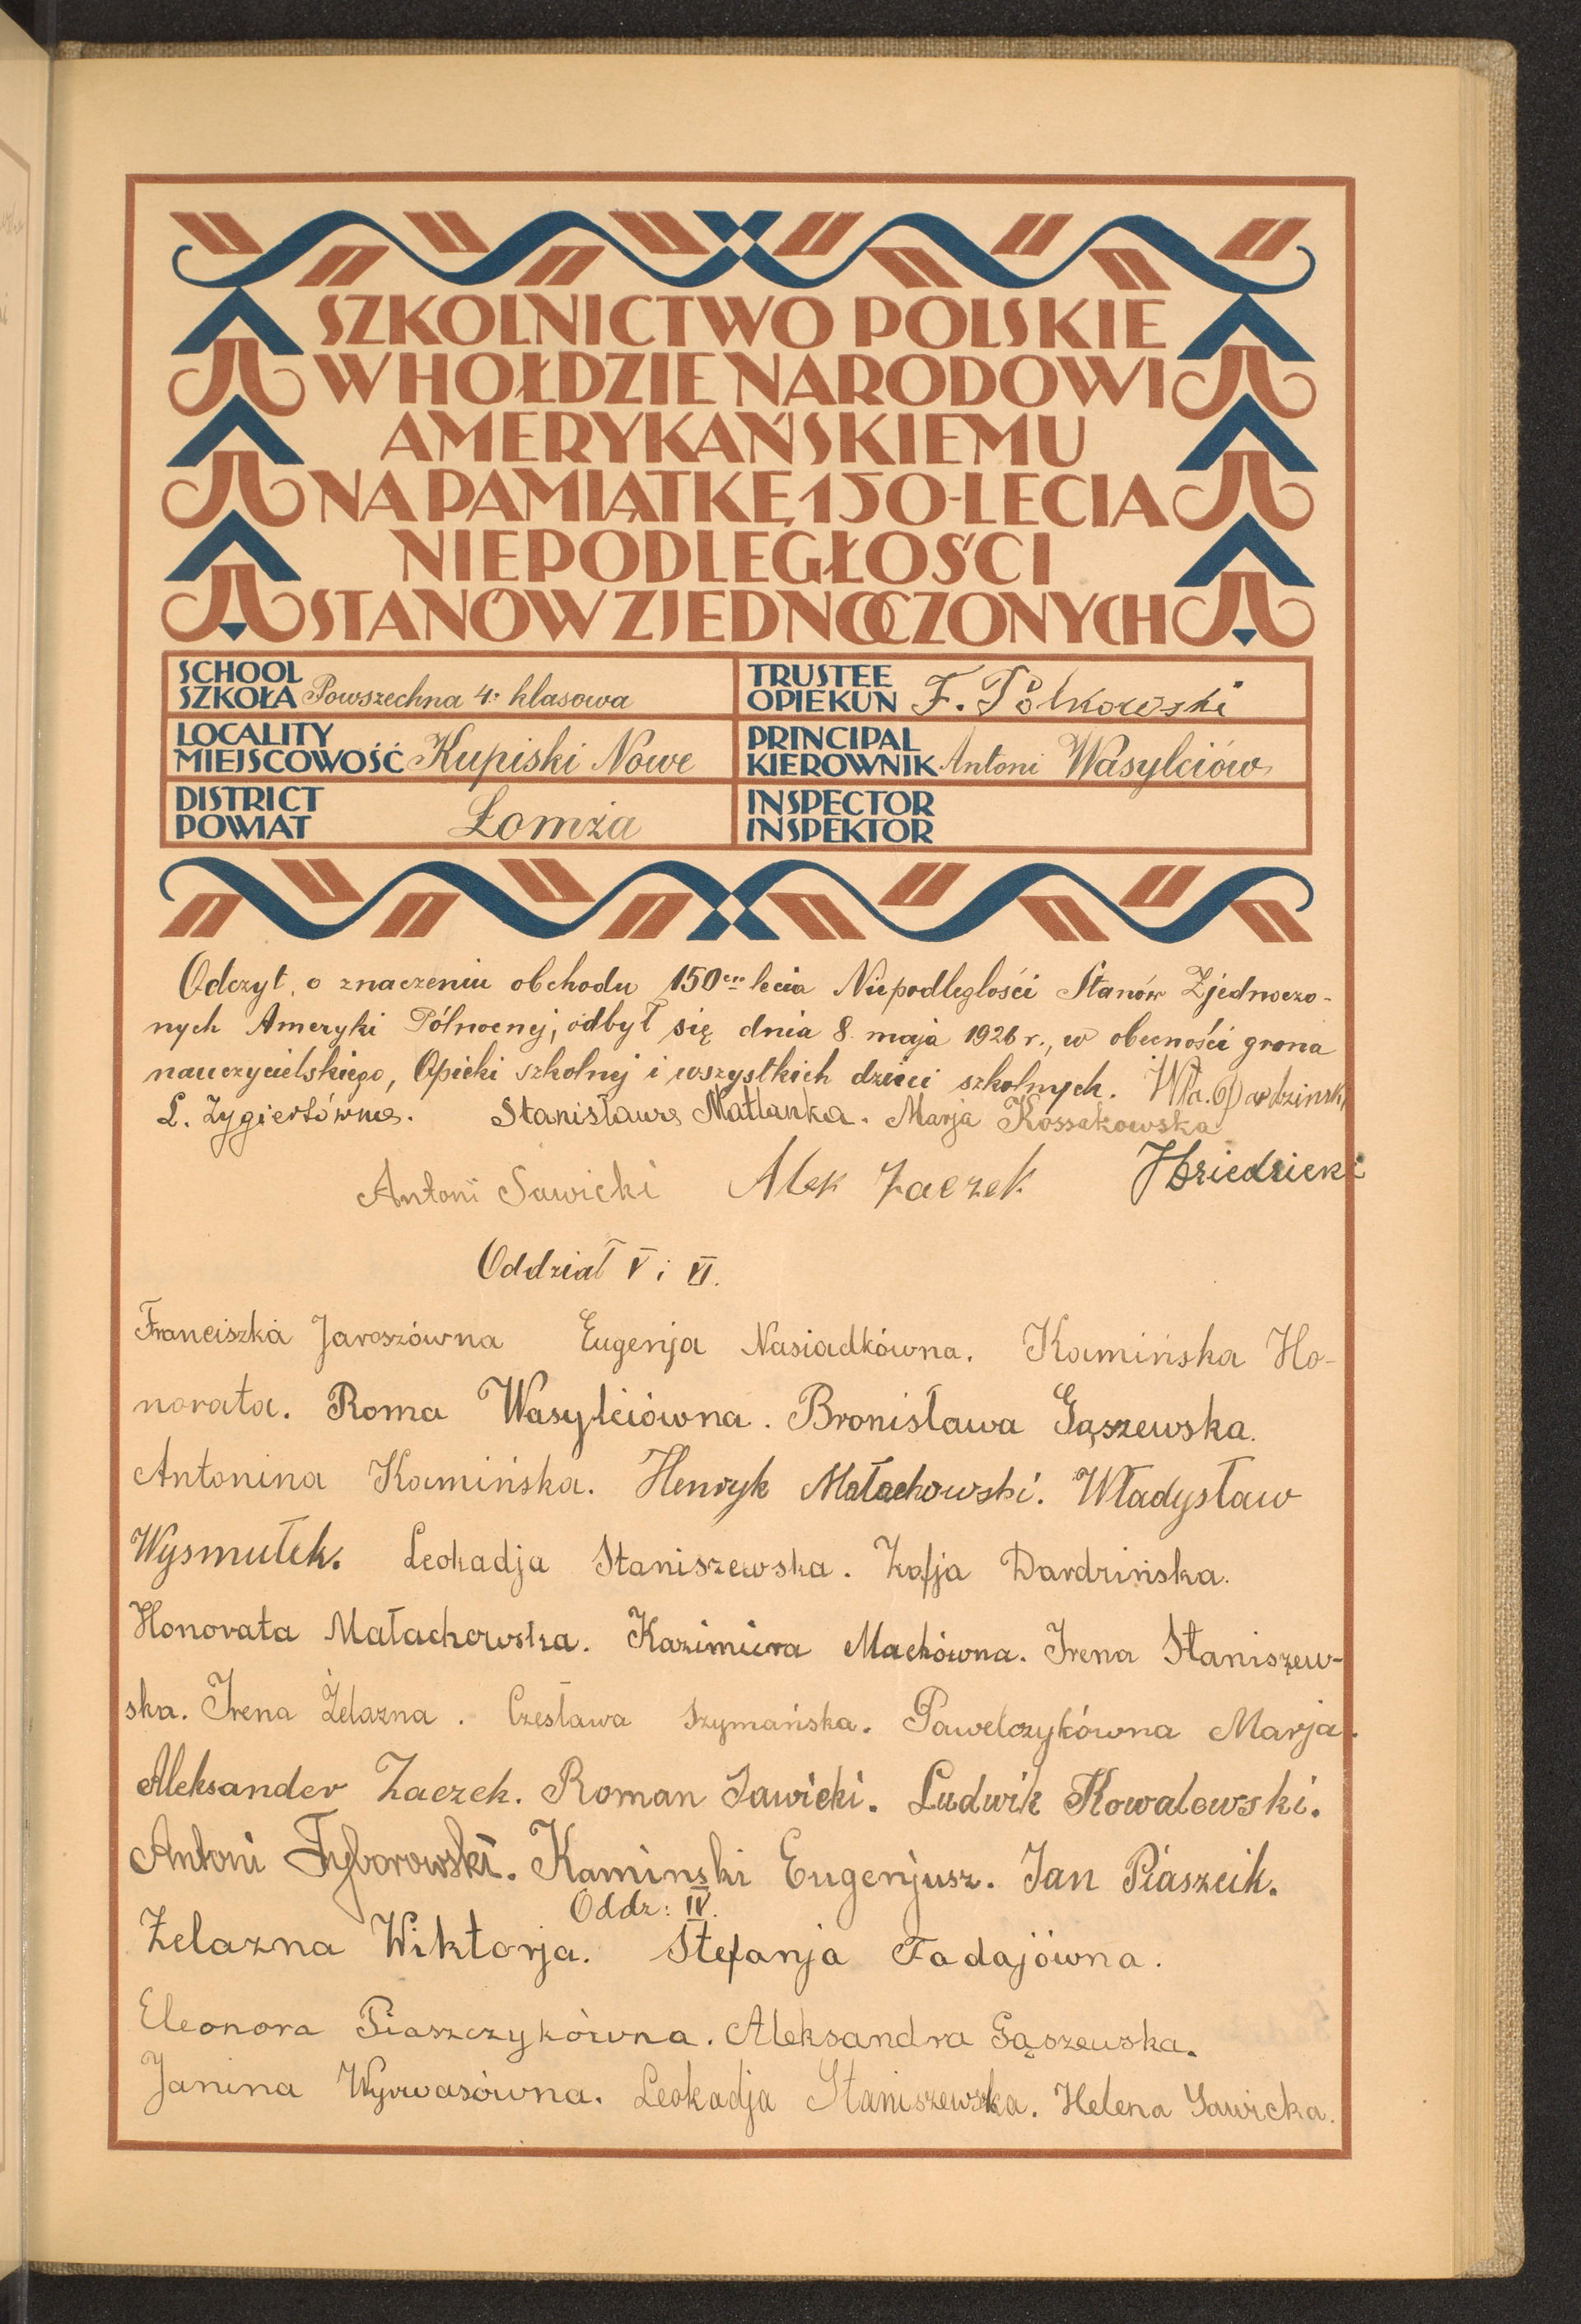 SZKOLNICTWO POLSKIE
W HOŁDZIE NARODOWI
AMERYKAŃSKIEMU
NA PAMIĄTKĘ 150-LECIA
NIEPODLEGŁOŚCI
STANÓW ZJEDNOCZONYCH
SCHOOL
SZKOŁA Powszechna 4: klasowa
TRUSTEE
OPIEKUN F. Polkowski
LOCALITY
MIEJSCOWOŚĆ Kupiski Nowe
PRINCIPAL
KIEROWNIK Antoni Wasylciów
DISTRICT
POWIAT Łomża
INSPECTOR
INSPEKTOR
Odczyt, o znaczeniu obchodu 150cio lecia Niepodległości Stanów Zjednoczo-
nych Ameryki Północnej, odbył się dnia 8. maja 1926 r., w obecności grona
nauczycielskiego, Opieki szkolnej i wszystkich dzieci szkolnych. Wła. Dardzinski
L. Zygiertówna. Stanisława Matlanka. Marja Kossakowska
Antoni Sawicki Alek Zaczek
Oddział V i VI.
Franciszka Jaroszówna Eugenja Nasiadkówna. Kamińska Ho-
norata. Roma Wasylciówna. Bronisława Gąszewska.
Antonina Kamińska. Henryk Małachowski. Władysław
Wysmułek. Leokadja Staniszewska. Zofja Dardzińska.
Honorata Małachowska. Kazimiera Mackówna. Irena Staniszew-
ska. Irena Żelazna. Czesława Szymańska. Pawelczykówna Marja.
Aleksander Zaczek. Roman Sawicki. Ludwik Kowalewski.
Antoni Fyborowski. Kaminski Eugenjusz. Jan Piaszcik.
Oddz: IV.
Żelazna Wiktorja. Stefanja Fadajówna.
Eleonora Piaszczykówna. Aleksandra Gąszewska.
Janina Wyrwasówna. Leokadja Staniszewska. Helena Sawicka.